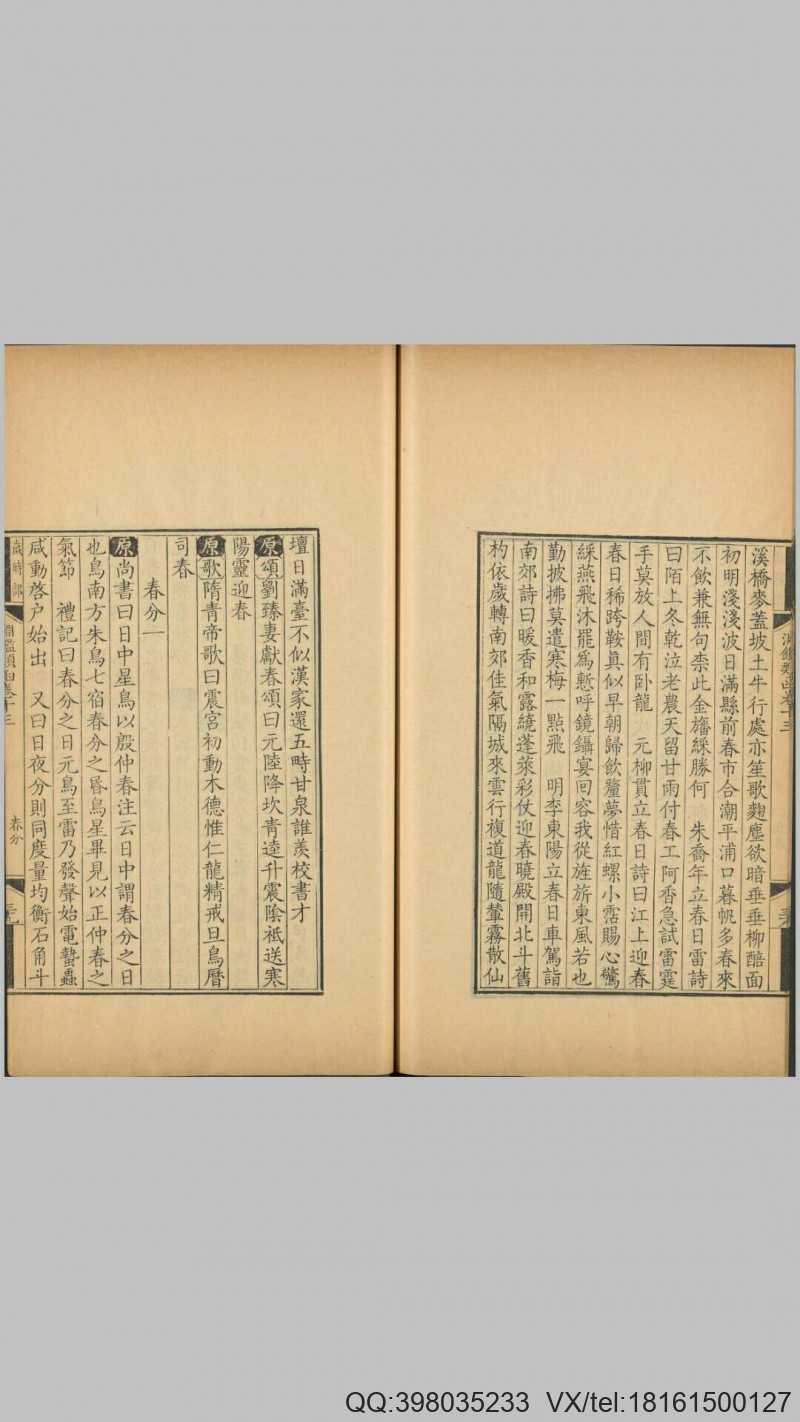 淵鑑類函卷十三
溪橋麥蓋坡土牛行處亦笙歌麴塵欲暗垂垂柳醅面
初明淺淺波日滿縣前春市合潮平浦口暮帆多春來
不飲兼無句柰此金旛綵勝何　朱喬年立春日雷詩
曰陌上冬乾泣老農天留甘雨付春工阿香急試雷霆
手莫放人間有卧龍　元柳貫立春日詩曰江上迎春
春日稀跨鞍真似早朝歸飲釐夢惜紅螺小霑賜心驚
綵燕飛沐罷爲慙呼鏡鑷宴回容我從旌旂東風若也
勤披拂莫遣寒梅一點飛　明李東陽立春日車駕詣
南郊詩曰暖香和露繞蓬萊彩仗迎春曉殿開北斗舊
杓依歲轉南郊佳氣隔城來雲行複道龍隨輦霧散仙
壇日滿臺不似漢家還五時甘泉誰羨校書才
原頌劉臻妻獻春頌曰元陸降坎青逵升震陰祗送寒
陽靈迎春
原歌隋青帝歌曰震宮初動木德惟仁龍精戒旦鳥曆
司春
春分一
原尚書曰日中星鳥以殷仲春注云日中謂春分之日
也鳥南方朱鳥七宿春分之昏鳥星畢見以正仲春之
氣節　禮記曰春分之日元鳥至雷乃發聲始電蟄蟲
咸動啓户始出　又曰日夜分則同度量均衡石角斗
歲時部
淵鑑類函卷十三
春分
QQ:398035233 VX/tel:18161500127